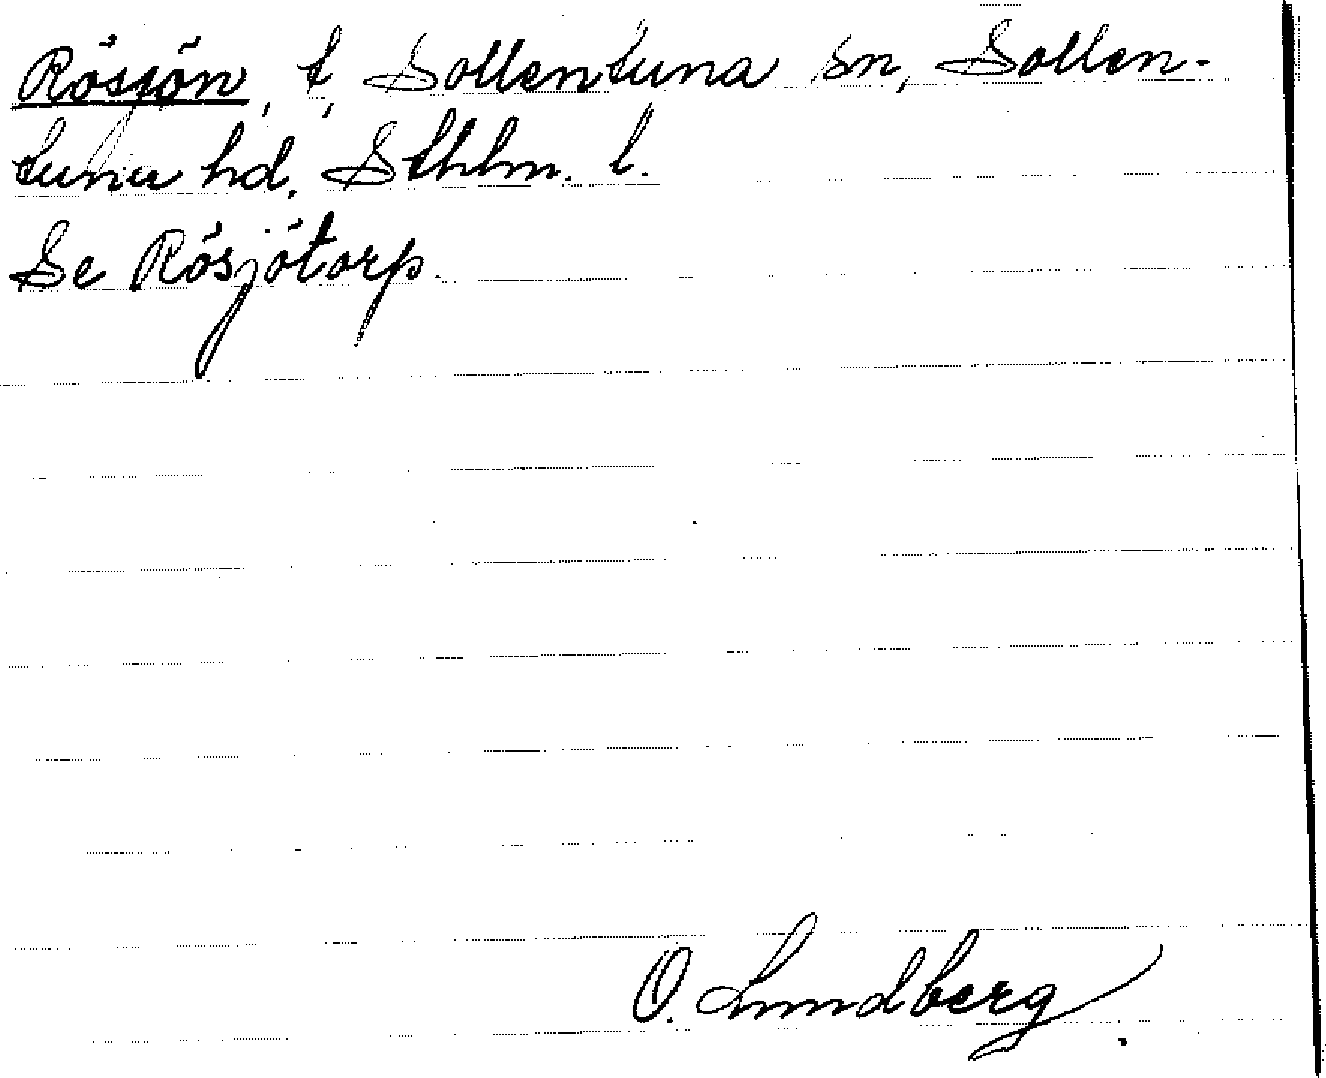 Rösjön, t, Sollentuna sn, Sollen-
tuna hd. Sthlm. l.
Se Rösjötorp.
O. Lundberg